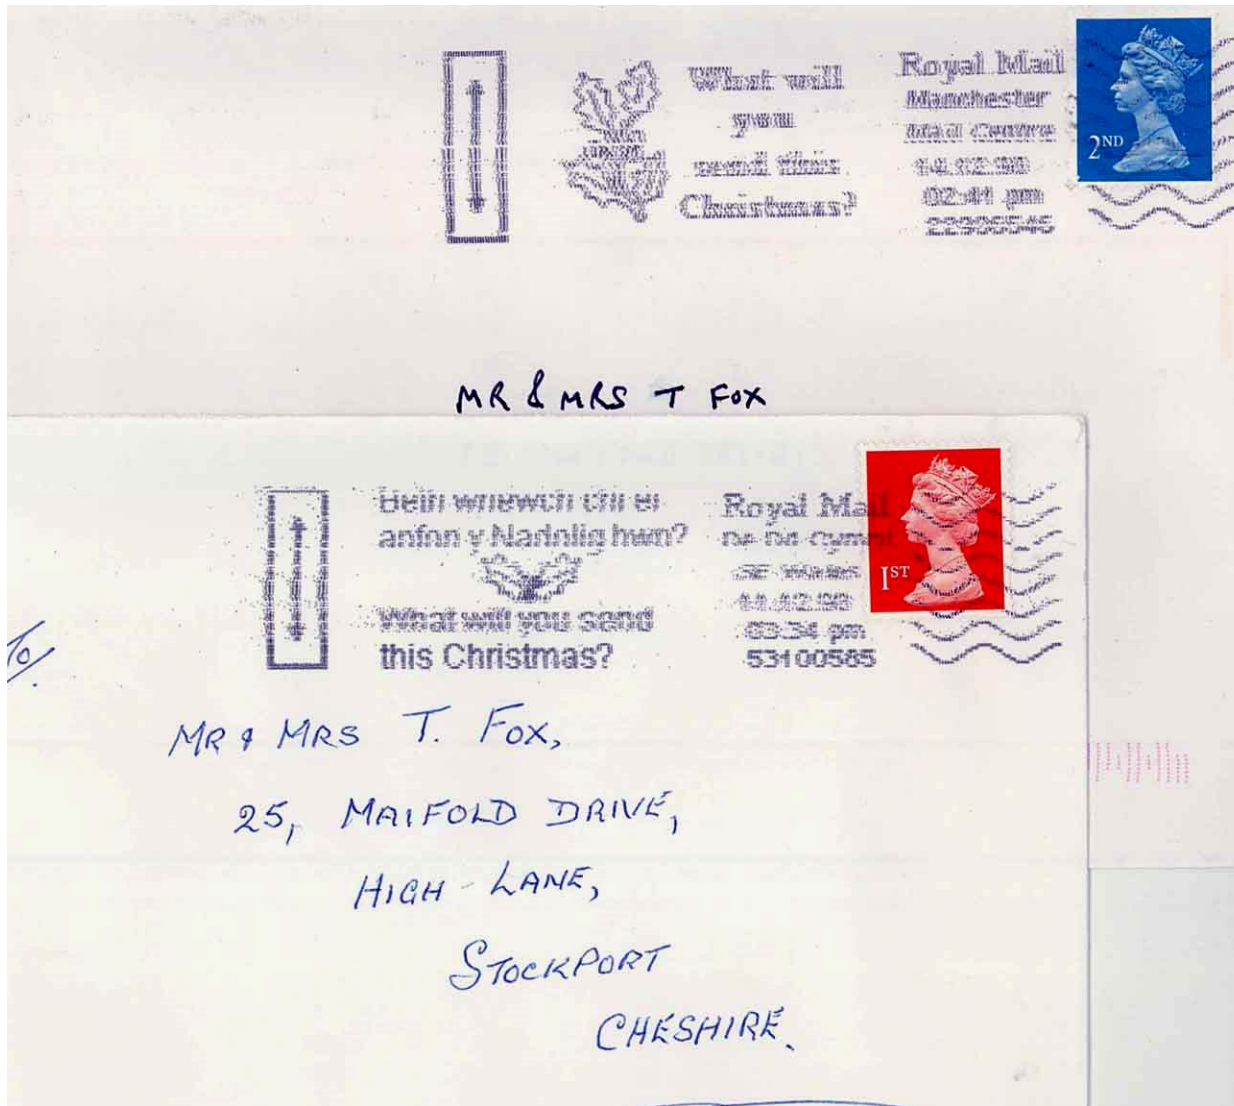 What will
you
send this
Christmas?
Royal Mail
Manchester
Mail Centre
14.12.98
02:41 pm
22905545
2ND
MR & MRS T FOX
Beth wnewch chi ei
anfon y Nadolig hwn?
What will you send
this Christmas?
Royal Mail
De Dd Cymru
SE Wales
11.12.98
03:34 pm
53100585
1ST
To/
MR & MRS T. FOX,
25, MAIFOLD DRIVE,
HIGH - LANE,
STOCKPORT
CHESHIRE.